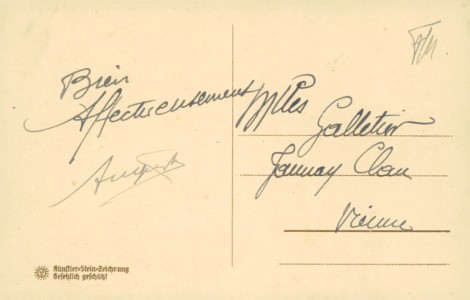 Bien
Affectueusement
Mlles
Galletier
Jaunay Clan
Vienne
Künstler-Stein-Zeichnung
Gesetzlich geschützt